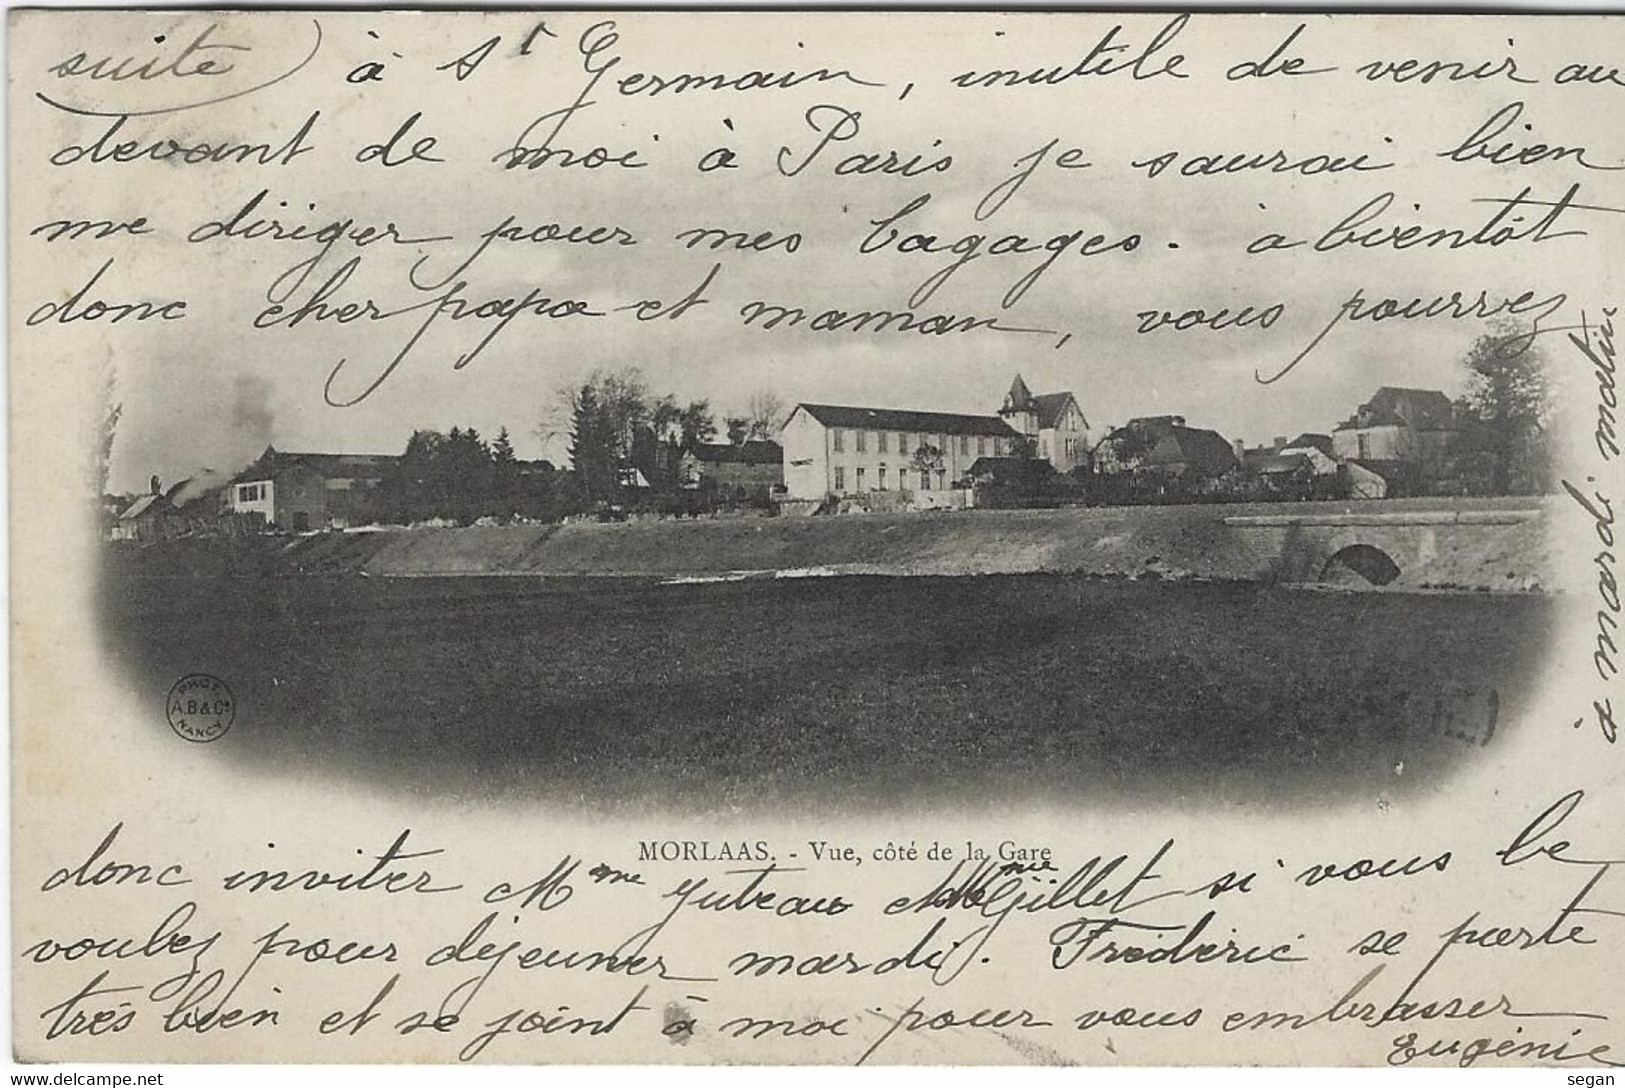 suite) à St Germain, inutile de venir au
devant de moi à Paris je saurai bien
me diriger pour mes bagages. a bientôt
donc cher papa et maman, vous pourrez
donc inviter Mme Juteau Mme Gillet si vous le
voulez pour déjeuner mardi. Fréderic se porte
très bien et se joint à moi pour vous embrasser
Eugénie
à mardi matin
MORLAAS. - Vue, côté de la Gare
PHOT.
A.B & Cie
NANCY
segan